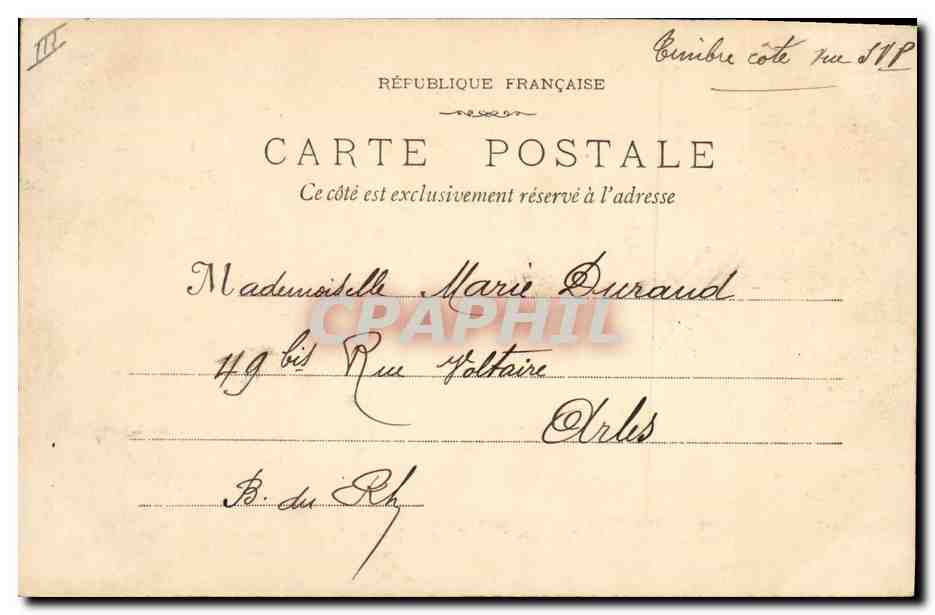 III
Timbre côté vue SVP
RÉPUBLIQUE FRANÇAISE
CARTE POSTALE
Ce côté est exclusivement réservé à l'adresse
Mademoiselle Marie Durand
CPAPHIL
49 bis Rue Voltaire
Arles
B. du Rh